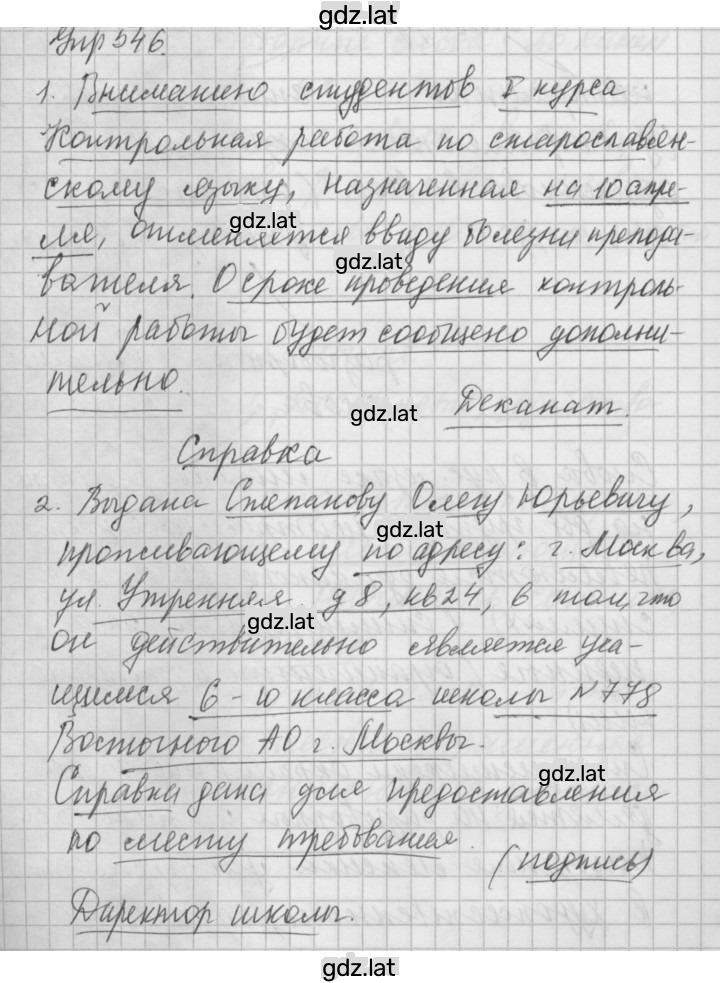 gdz.lat
Упр 546.
1. Вниманию студентов I курса.
Контрольная работа по старославян-
скому языку, назначенная на 10 апре-
gdz.lat
ля, отменяется ввиду болезни препода-
gdz.lat
вателя. О сроке проведения контроль-
ной работы будет сообщено дополни-
тельно.
gdz.lat
Деканат.
Справка
2. Выдана Степанову Олегу Юрьевичу,
gdz.lat
проживающему по адресу: г. Москва,
ул. Утренняя д 8, кв 24, в том, что
gdz.lat
он действительно является уча-
щимся 6-го класса школы №778
Восточного АО г. Москвы.
gdz.lat
Справка дана для предоставления
по месту требования.
(подпись)
Директор школы.
gdz.lat